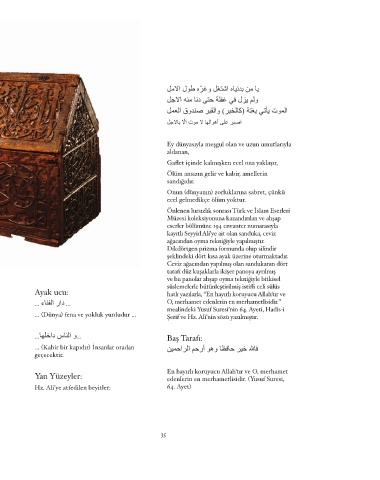 يا من بدنياه اشتغل وغرّه طول الامل
ولم يزل في غفلة حتى دنا منه الاجل
الموت يأتي بغتة (كالخبر) والقبر صندوق العمل
اصبر على أهوالها لا موت الا بالاجل
Ey dünyasıyla meşgul olan ve uzun umutlarıyla
aldanan,
Gaflet içinde kalmışken ecel ona yaklaşır,
Ölüm ansızın gelir ve kabir, amellerin
sandığıdır.
Onun (dünyanın) zorluklarına sabret, çünkü
ecel gelmedikçe ölüm yoktur.
Önlenen hırsızlık sonrası Türk ve İslam Eserleri
Müzesi koleksiyonuna kazandırılan ve ahşap
eserler bölümüne 194 envanter numarasıyla
kayıtlı Seyyid Ali'ye ait olan sanduka, ceviz
ağacından oyma tekniğiyle yapılmıştır.
Dikdörtgen prizma formunda olup silindir
şeklindeki dört kısa ayak üzerine oturmaktadır.
Ceviz ağacından yapılmış olan sandukanın dört
tarafı düz kuşaklarla ikişer panoya ayrılmış
ve bu panolar ahşap oyma tekniğiyle bitkisel
süslemelerle bütünleştirilmiş istifli celi sülüs
hatlı yazılarla, "En hayırlı koruyucu Allah'tır ve
O, merhamet edenlerin en merhametlisidir."
mealindeki Yusuf Suresi'nin 64. Ayeti, Hadis-i
Şerif ve Hz. Ali'nin sözü yazılmıştır.
Ayak ucu:
... دار الفناء ...
... (Dünya) fena ve yokluk yurdudur ...
...و الناس داخلها...
... (Kabir bir kapıdır) İnsanlar oradan
geçecektir.
Yan Yüzeyler:
Hz. Ali'ye atfedilen beyitler:
Baş Tarafı:
فالله خير حافظا وهو أرحم الراحمين
En hayırlı koruyucu Allah'tır ve O, merhamet
edenlerin en merhametlisidir. (Yusuf Suresi,
64. Ayet)
35